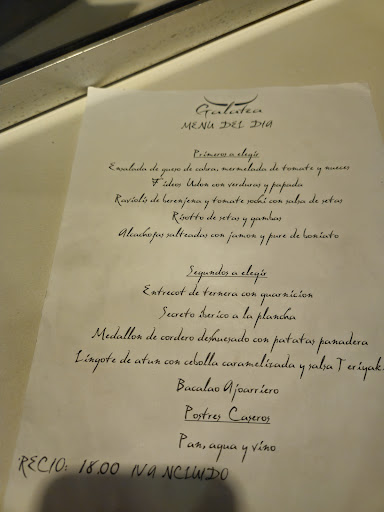 Galatea
MENU DEL DIA
Primeros a elegir
Ensalada de queso de cabra, mermelada de tomate y nueces
Fideos Udon con verduras y papada
Raviolis de berenjena y tomate sochi con salsa de setas
Risotto de setas y gambas
Alcachofas salteadas con jamon y pure de boniato
Segundos a elegir
Entrecot de ternera con guarnicion
Secreto iberico a la plancha
Medallon de cordero deshuesado con patatas panadera
Lingote de atun con cebolla caramelizada y salsa Teriyaki
Bacalao Ajoarriero
Postres Caseros
Pan, agua y vino
RECIO: 18.00 IVA NCLUIDO